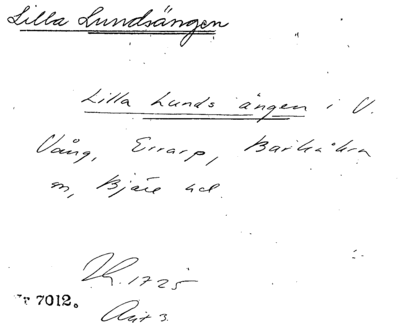 Lilla Lundsängen
Lilla Lunds ängen i V.
Vång, Errarp, Barkåkra
sn, Bjäre hd.
LR. 1725
Nr 7012. Akt 3.